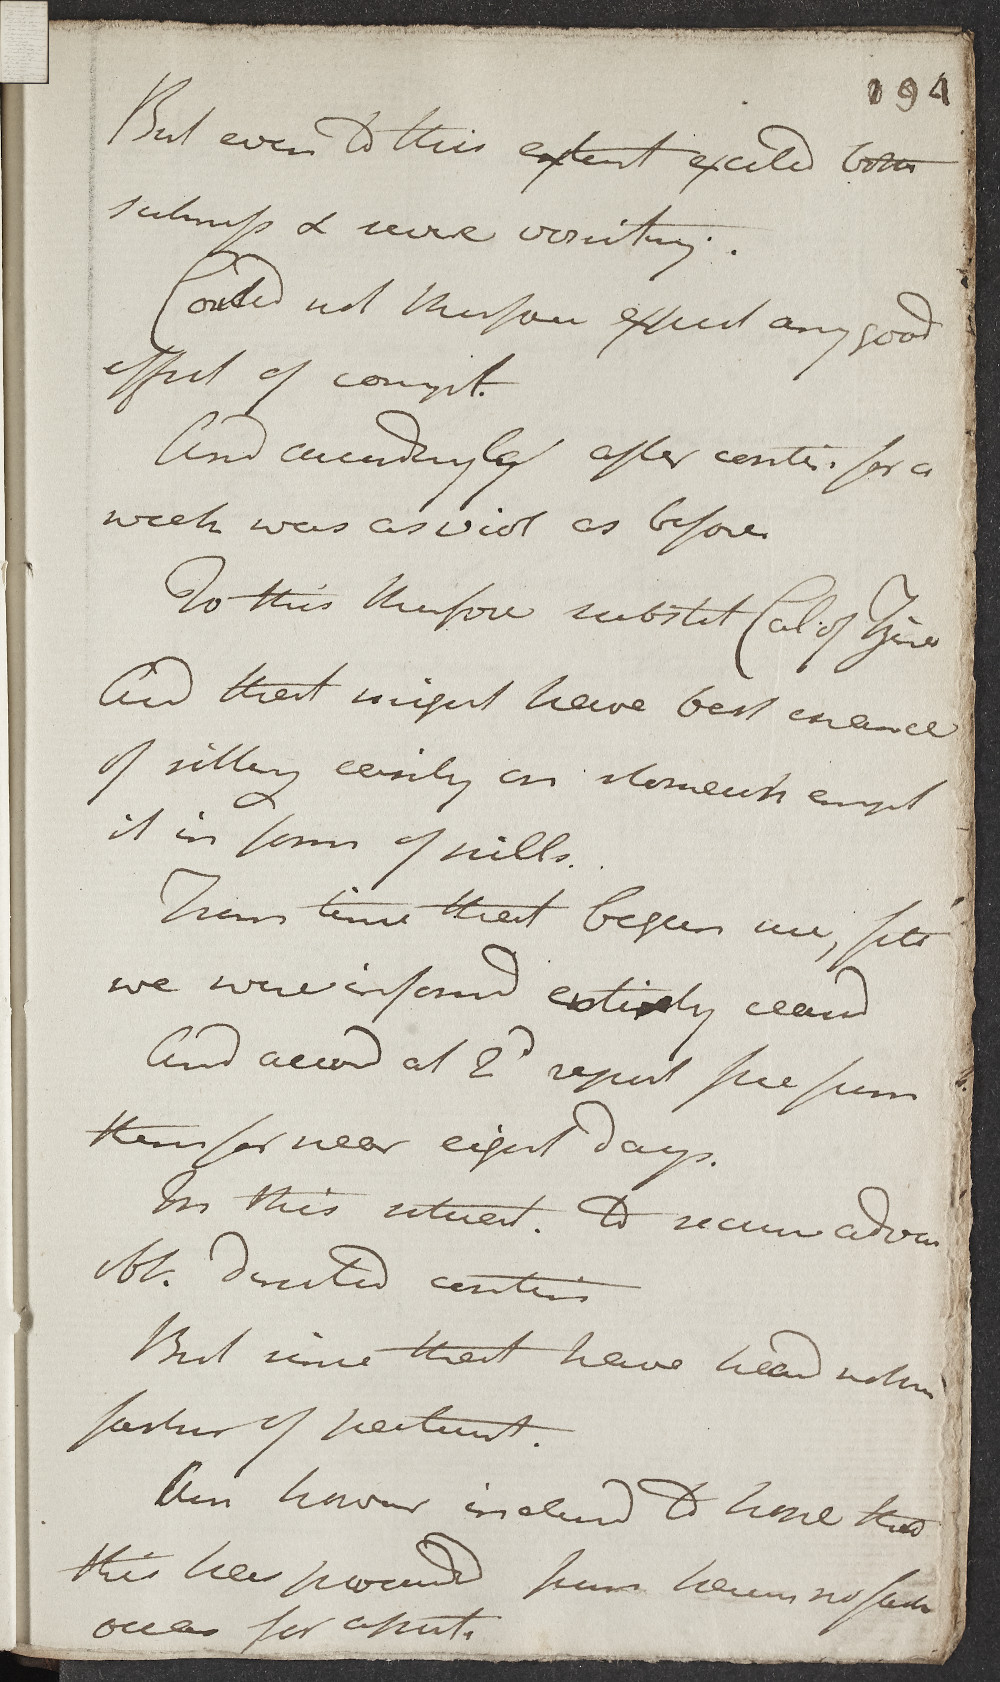 194
But even to this extent excited both
sickness & severe vomiting.
Could not therefore expect any good
effect of consupt.
And accordingly after contin. for a
week was as viol as before.
To this therefore substit Cal. of Zinc
And that might have best chance
of sitting easily on stomach empl
it in form of pills.
From time that begun use, fits
we were informd entirely ceasd
And accord at 2d report free from
them for near eight days.
In this situat. to secure advan
obt. directed contin
But since that have heard nothin
farther of patient.
Am however inclind to hope that
this has proceeded from having no farth
occas for assist.